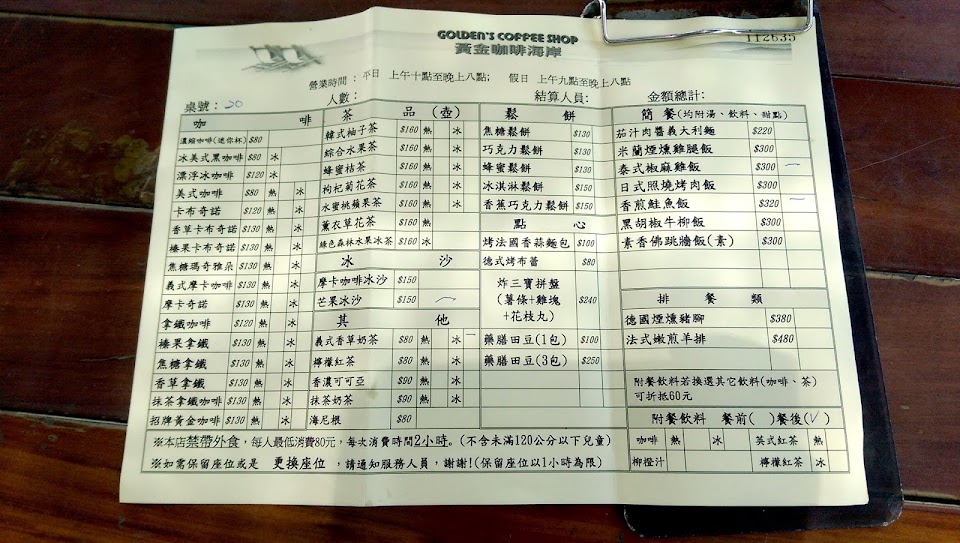 GOLDEN'S COFFEE SHOP
112635
黃金咖啡海岸
營業時間：平日 上午十點至晚上八點; 假日 上午九點至晚上八點
桌號：20 人數： 結算人員： 金額總計：
咖啡
濃縮咖啡(迷你杯) $80
冰美式黑咖啡 $80 冰
漂浮冰咖啡 $120 冰
美式咖啡 $80 熱 冰
卡布奇諾 $120 熱 冰
香草卡布奇諾 $130 熱 冰
榛果卡布奇諾 $130 熱 冰
焦糖瑪奇雅朵 $130 熱 冰
義式摩卡咖啡 $130 熱 冰
摩卡奇諾 $130 熱 冰
拿鐵咖啡 $120 熱 冰
榛果拿鐵 $130 熱 冰
焦糖拿鐵 $130 熱 冰
香草拿鐵 $130 熱 冰
抹茶拿鐵咖啡 $130 熱 冰
招牌黃金咖啡 $130 熱 冰
茶品(壺)
韓式柚子茶 $160 熱 冰
綜合水果茶 $160 熱 冰
蜂蜜桔茶 $160 熱 冰
枸杞菊花茶 $160 熱 冰
水蜜桃蘋果茶 $160 熱 冰
薰衣草花茶 $160 熱 冰
綠色森林水果冰茶 $160 冰
冰沙
摩卡咖啡冰沙 $150
芒果冰沙 $150 一
其他
義式香草奶茶 $80 熱 冰 一
檸檬紅茶 $80 熱 冰
香濃可可亞 $90 熱 冰
抹茶奶茶 $90 熱 冰
海尼根 $80
鬆餅
焦糖鬆餅 $130
巧克力鬆餅 $130
蜂蜜鬆餅 $130
冰淇淋鬆餅 $150
香蕉巧克力鬆餅 $150
點心
烤法國香蒜麵包 $100
德式烤布蕾 $80
炸三寶拼盤
(薯條+雞塊
+花枝丸) $240
藥膳田豆(1包) $100
藥膳田豆(3包) $250
簡餐(均附湯、飲料、甜點)
茄汁肉醬義大利麵 $220
米蘭煙燻雞腿飯 $300
泰式椒麻雞飯 $300 一
日式照燒烤肉飯 $300
香煎鮭魚飯 $320 一
黑胡椒牛柳飯 $300
素香佛跳牆飯(素) $300
排餐類
德國煙燻豬腳 $380
法式嫩煎羊排 $480
附餐飲料若換選其它飲料(咖啡、茶)
可折抵60元
附餐飲料 餐前( )餐後(✓)
咖啡 熱 冰 英式紅茶 熱
柳橙汁 檸檬紅茶 冰
※本店禁帶外食，每人最低消費80元，每次消費時間2小時。(不含未滿120公分以下兒童)
※如需保留座位或是 更換座位，請通知服務人員，謝謝!(保留座位以1小時為限)